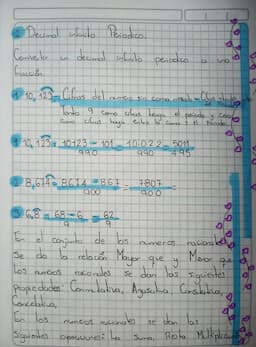 Decimal infinito Periodico.
Convertir un decimal infinito periodico a una
fracción.
1 10,123 = Cifras del numero sin coma
9 como cifras tenga el periodo y ceros
como cifras haya entre la coma y el Periodo.
1 10,123 = 10123 - 101 = 10.022 = 5011
990 990 495
2 8,674 = 8674 - 867 = 7807
900 900
3 6,8 = 68 - 6 = 62
9 9
En el conjunto de los numeros racionales
se da la relación Mayor que y Menor que
Los numeros racionales se dan las siguientes
propiedades: Conmutativa,
Cancelativa.
En los numeros racionales se dan las
siguientes operaciones: La Suma, Resta Multiplicación